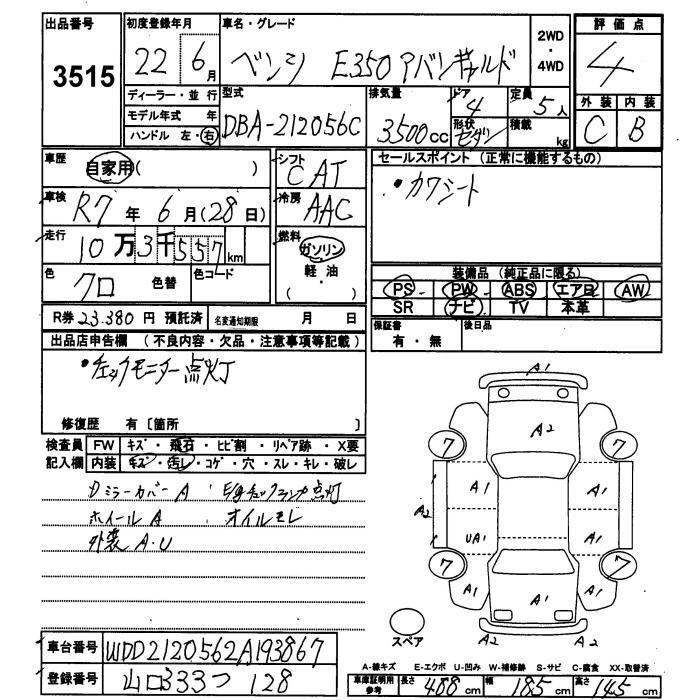 出品番号
3515
初度登録年月
22 6月
車名・グレード
ベンツ E350 アバンギャルド
2WD
・
4WD
評価点
4
外装 内装
C B
ディーラー・並行
モデル年式 年
ハンドル 左・右
型式
DBA-212056C
排気量
3500cc
ドア
4
形状
セダン
定員
5人
積載
kg
車歴
自家用( )
車検
R7年 6月(28日)
走行
10万3千557km
色
クロ
色替
色コード
シフト
CAT
冷房
AAC
燃料
ガソリン
軽・油
( )
セールスポイント (正常に機能するもの)
・カワシート
装備品 (純正品に限る)
PS PW ABS エアB AW
SR ナビ TV 本革
R券 23.380円 預託済
名変通知期限 月 日
保証書
有・無
後日品
出品店申告欄 (不良内容・欠品・注意事項等記載)
・チェックモニター点灯
修復歴 有〔箇所 〕
検査員
記入欄
FW キズ・飛石・ヒビ割・リペア跡・X要
内装 キズ・汚レ・コゲ・穴・スレ・キレ・破レ
Dミラーカバー A E/gチェックランプ点灯
ホイール A オイルモレ
外装 A・U
A1
A2
7 7
A1 A1
A1 A1
A2
UA1 A1
7 7
A1 A1 A1
A2 A2
スペア
車台番号
WDD2120562A193867
登録番号
山口333つ 128
A-線キズ E-エクボ U-凹み W-補修跡 S-サビ C-腐食 XX-取替済
車庫証明用
参考
長さ 488cm 幅 185cm 高さ 145cm